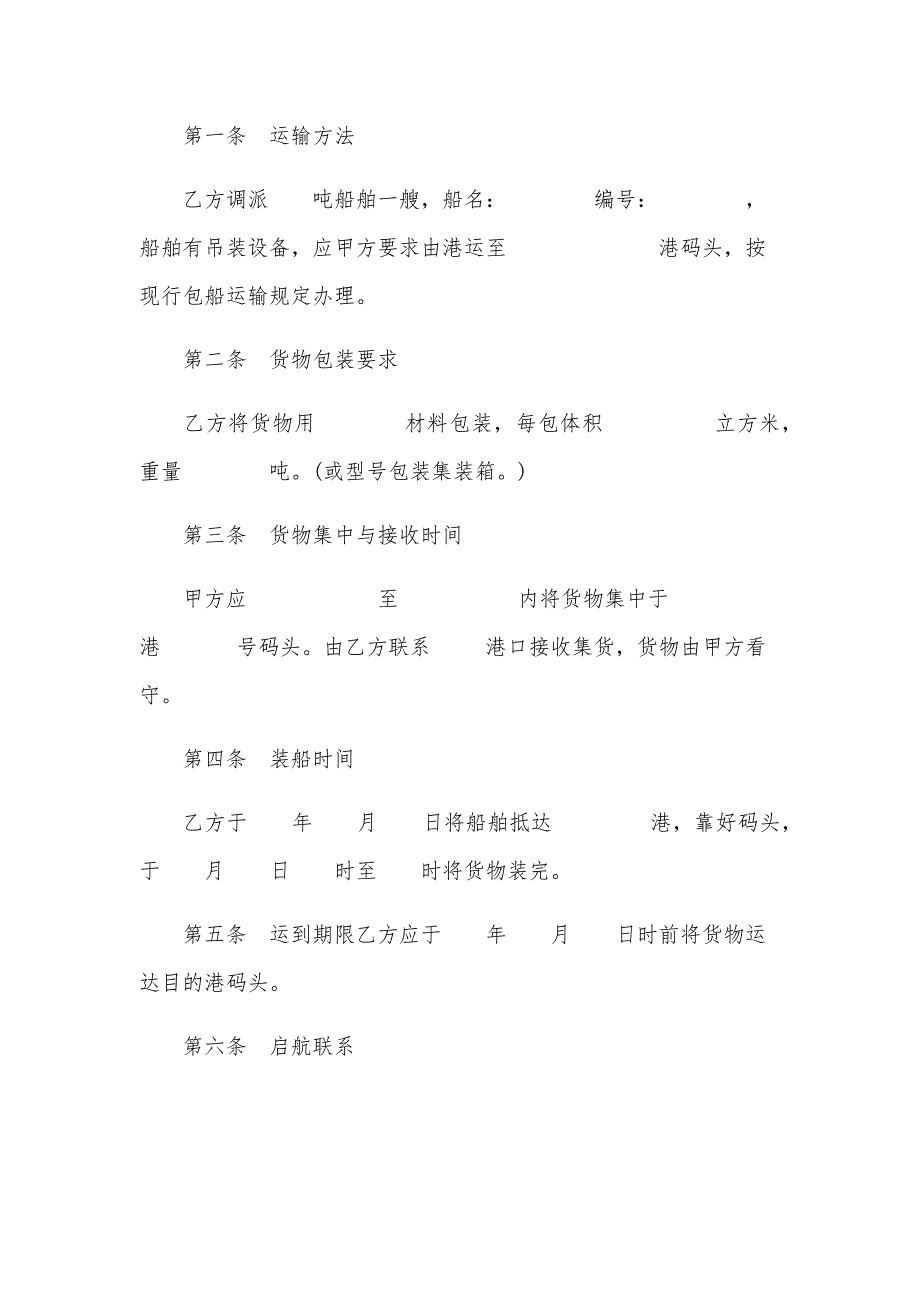 第一条　运输方法
乙方调派　　吨船舶一艘，船名：　　　　编号：　　　　，
船舶有吊装设备，应甲方要求由港运至　　　　　　　港码头，按
现行包船运输规定办理。
第二条　货物包装要求
乙方将货物用　　　　材料包装，每包体积　　　　　立方米，
重量　　　　吨。(或型号包装集装箱。)
第三条　货物集中与接收时间
甲方应　　　　　　至　　　　　　内将货物集中于
港　　　　号码头。由乙方联系　　港口接收集货，货物由甲方看
守。
第四条　装船时间
乙方于　　年　　月　　日将船舶抵达　　　　港，靠好码头，
于　　月　　日　　时至　　时将货物装完。
第五条　运到期限乙方应于　　年　　月　　日时前将货物运
达目的港码头。
第六条　启航联系